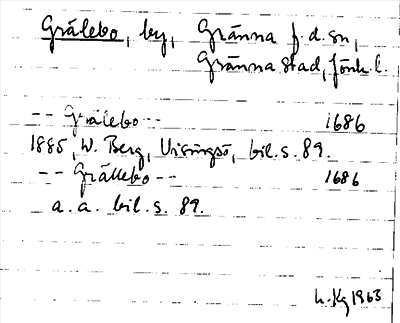 Grålebo, by, Gränna f.d. sn,
Gränna stad, Jönk. l.
-- Grålebo -- 1686
1885, W. Berg, Visingsö, bil. s. 89.
-- Grållebo -- 1686
a. a. bil. s. 89.
L. Kg 1963